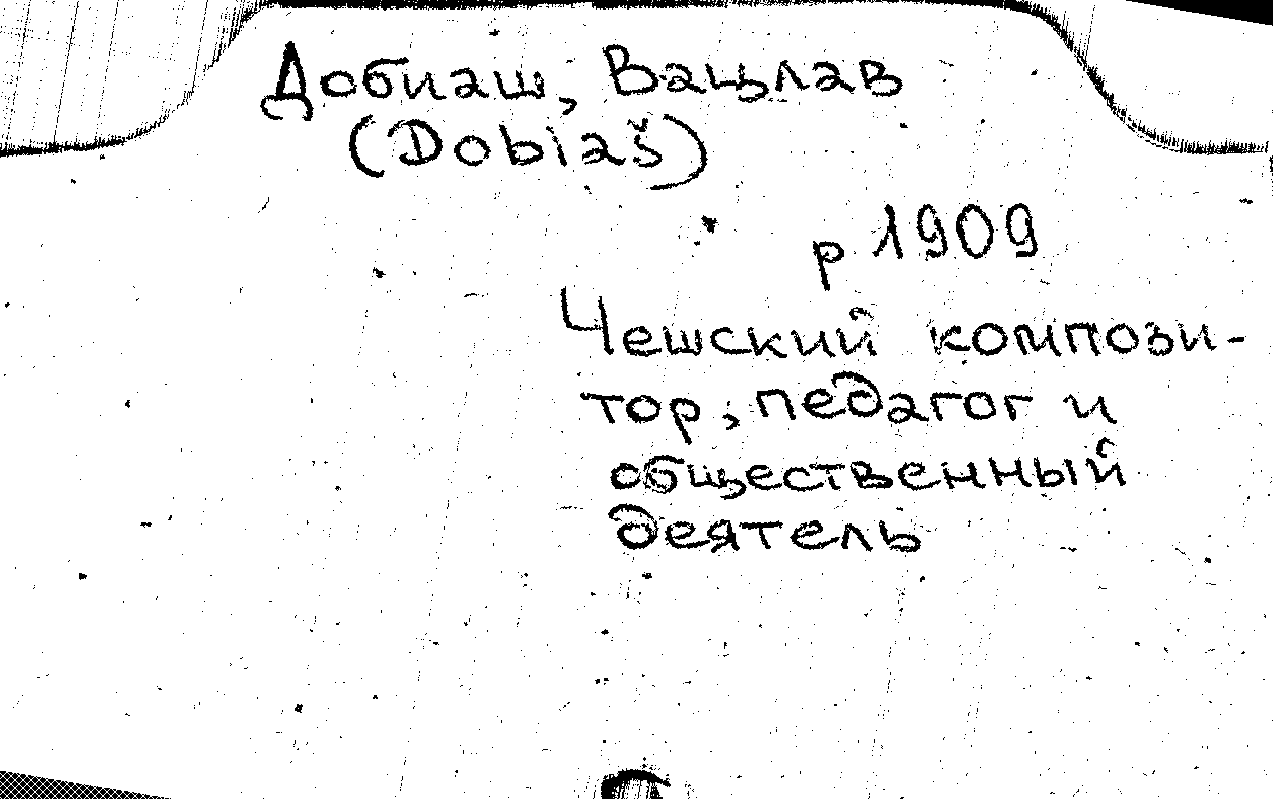 Добиаш, Вацлав
(Dobiaš)
р 1909
Чешский компози-
тор, педагог и
общественный
деятель